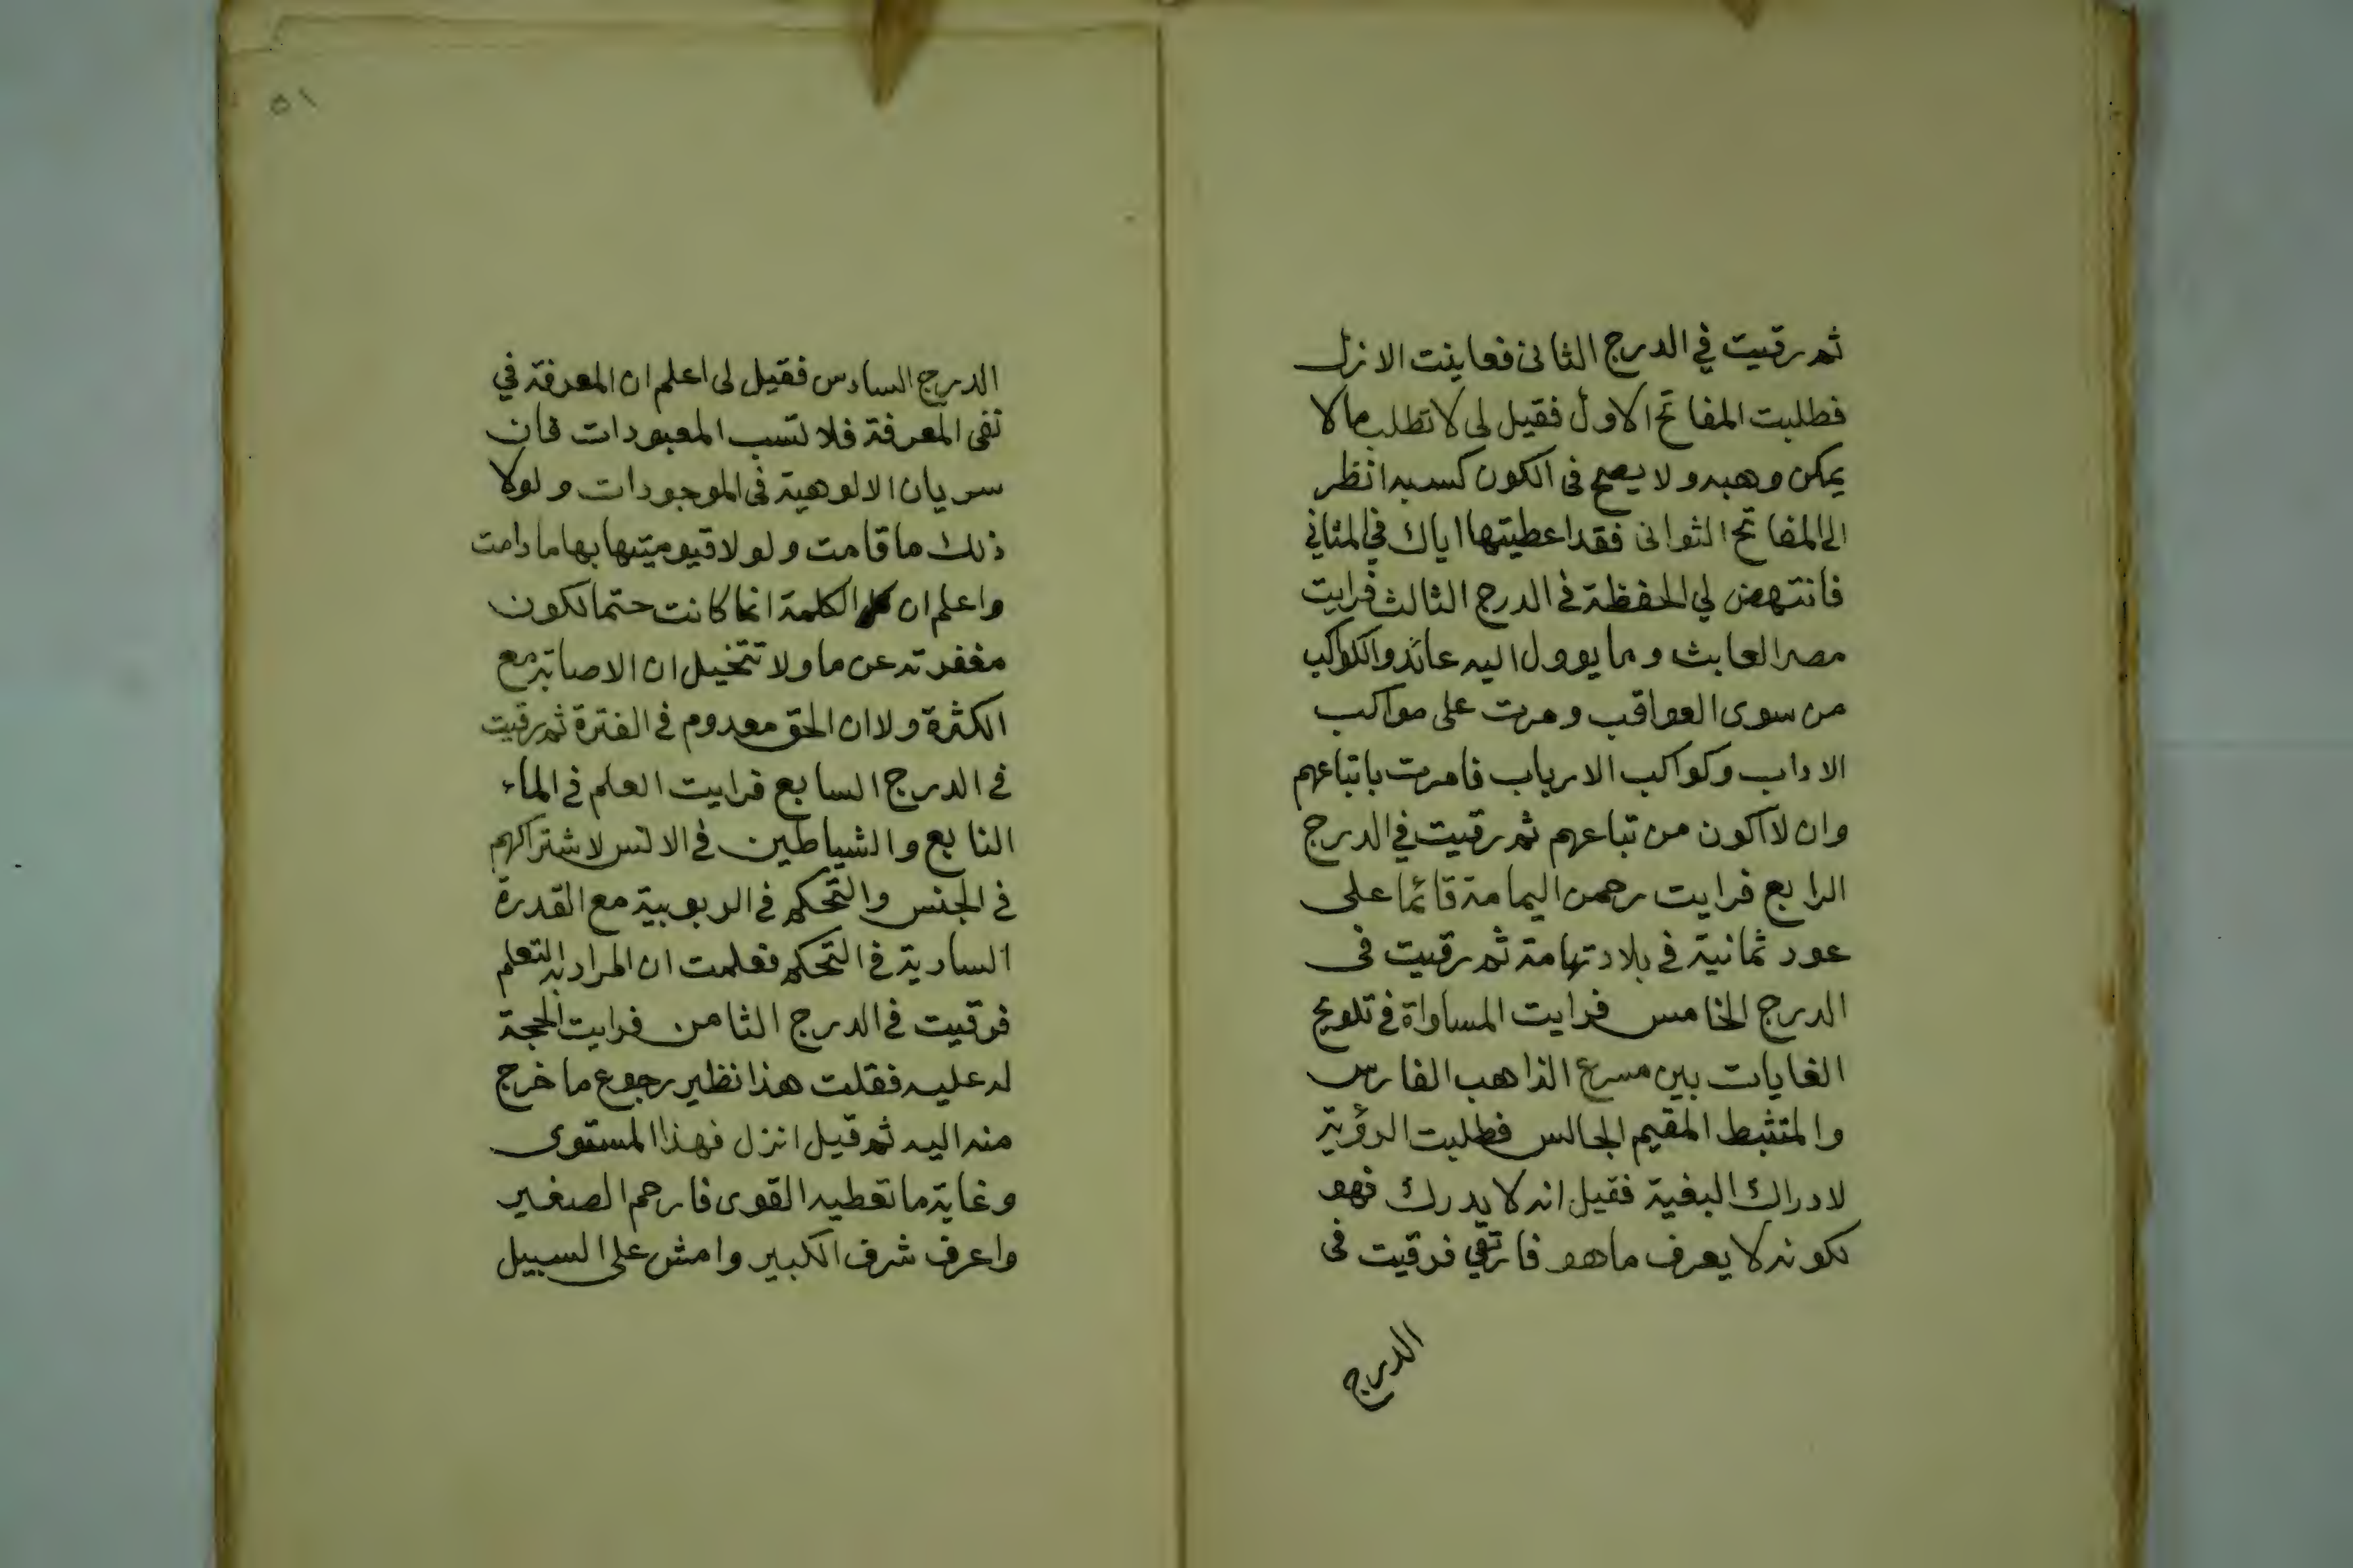 ثم رقيت في الدرج الثانى فعاينت الازل
فطلبت المفاتح الاول فقيل لى لا تطلب مالا
يمكن وهبه ولا يصح فى الكون كسبه انظر
الى المفاتح الثوانى فقد اعطيتها اياك في المثاني
فانتهض لي الحفظة فى الدرج الثالث فرايت
مصر العابث وما يوول اليه عائد والكواكب
من سوى العواقب ومرت على مواكب
الاداب وكواكب الارباب فامرت باتباعهم
وان لا اكون من تباعهم ثم رقيت في الدرج
الرابع فرايت رحمن اليمامة قائما على
عود ثمانية في بلاد تهامة ثم رقيت فى
الدرج الخامس فرايت المساواة في تلويح
الغايات بين مسرع الذاهب الفارس
والمتثبط المقيم الجالس فطلبت الرؤية
لادراك البغية فقيل انه لا يدرك فهو
لكونه لا يعرف ماهو فارتقي فرقيت فى
الدرج
٥١
الدرج السادس فقيل لى اعلم ان المعرفة في
نفى المعرفة فلا تسب المعبودات فان
سريان الالوهية فى الموجودات ولولا
ذلك ما قامت ولولا قيوميتها بها ما دامت
واعلم ان الكلمة انما كانت حتما لكون
مغفرته عن ما ولا تتخيل ان الاصابة مع
الكثرة ولا ان الحق معدوم في الفترة ثم رقيت
في الدرج السابع فرايت العلم في الماء
النابع والشياطين في الانس لاشتراكهم
في الجنس والتحكم في الربوبية مع القدرة
السارية في التحكم فعلمت ان المراد به التعلم
فرقيت في الدرج الثامن فرايت الحجة
له عليه فقلت هذا نظير رجوع ما خرج
منه اليه ثم قيل انزل فهذا المستوى
وغاية ما تعطيه القوى فارحم الصغير
واعرف شرف الكبير وامش على السبيل